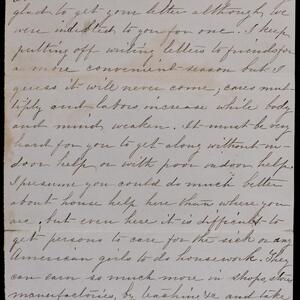 glad to get your letter although we
were indebted to you for one. I keep
putting off writing letters to friends for
a more convenient season but I
guess it will never come, cares mul
tiply and labors increase while body
and mind weaken. It must be very
hard for you to get along without in-
door help or with poor outdoor help.
I presume you could do much better
about house help here than where you
are, but even here it is difficult to
get persons to care for the sick or any
American girls to do housework. They
can earn so much more in shops, stores
manufactories, by teaching &c and take